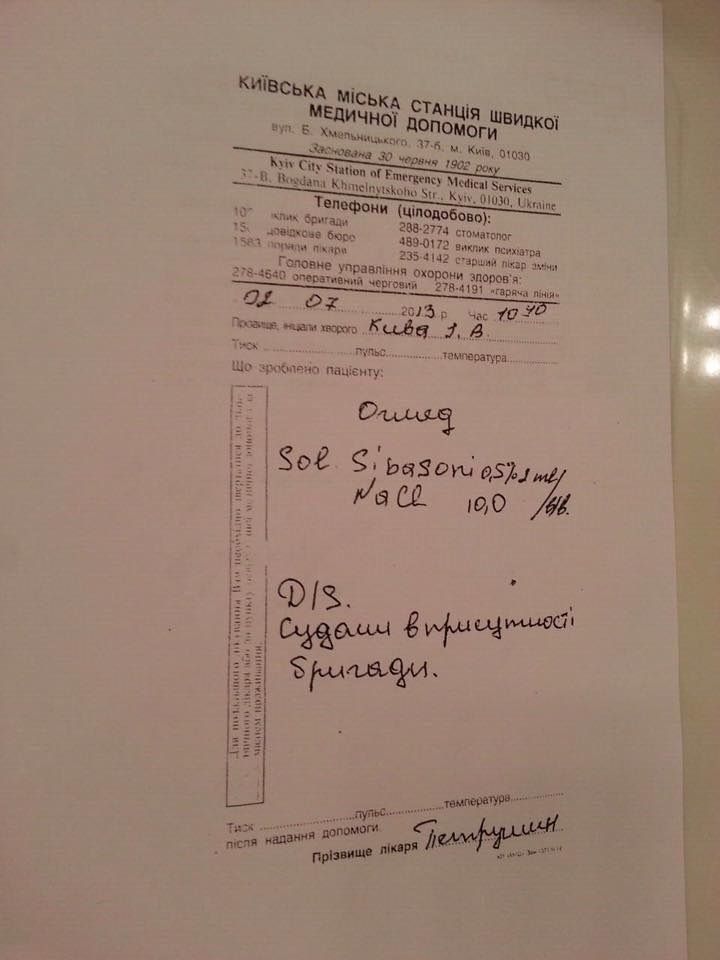 КИЇВСЬКА МІСЬКА СТАНЦІЯ ШВИДКОЇ
МЕДИЧНОЇ ДОПОМОГИ
вул. Б. Хмельницького, 37-б, м. Київ, 01030
Заснована 30 червня 1902 року
Kyiv City Station of Emergency Medical Services
37-B, Bogdana Khmelnytskoho Str., Kyiv, 01030, Ukraine
Телефони (цілодобово):
бригади 288-2774 стоматолог
довідкове бюро 489-0172 виклик психіатра
1583 поради лікаря 235-4142 старший лікар зміни
Головне управління охорони здоров'я:
278-4640 оперативний черговий 278-4191 «гаряча лінія»
02 07 2013 р. Час 10 40
Прізвище, ініціали хворого Кива І. В.
Тиск ............ пульс............температура............
Що зроблено пацієнту:
Огляд
Sol. Sibasoni 0,5% 2 ml/
NaCl 10,0 /в/в.
D/S.
Судоми в присутності
бригади.
Для подальшого лікування Вам необхідно звернутися до
Тиск ............пульс............температура............
після надання допомоги.
Прізвище лікаря Петрушин